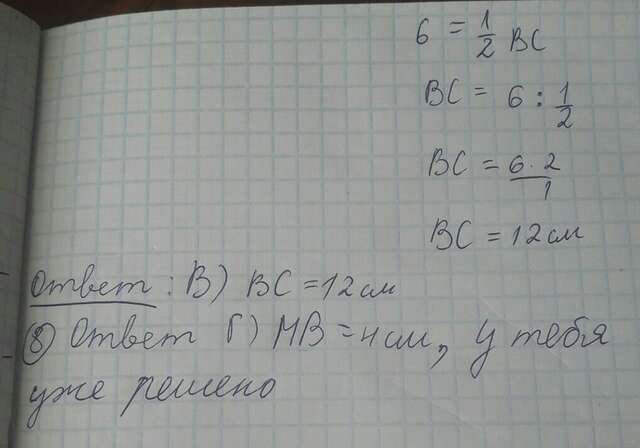 6 = 1/2 BC
BC = 6 : 1/2
BC = 6 · 2/1
BC = 12 см
Ответ : В) BC = 12 см
⑧ Ответ Г) MB = 4 см, у тебя
уже решено